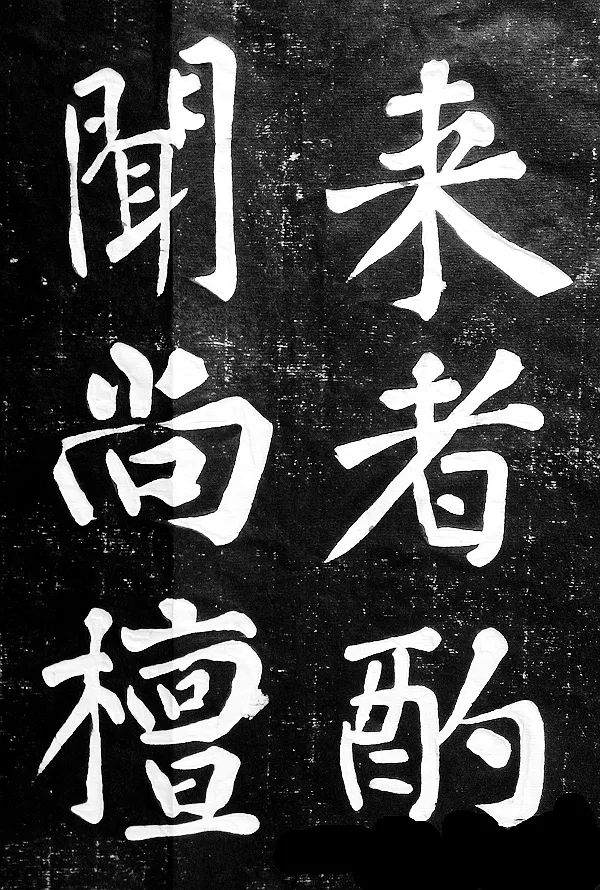 来者酌
聞尚檀